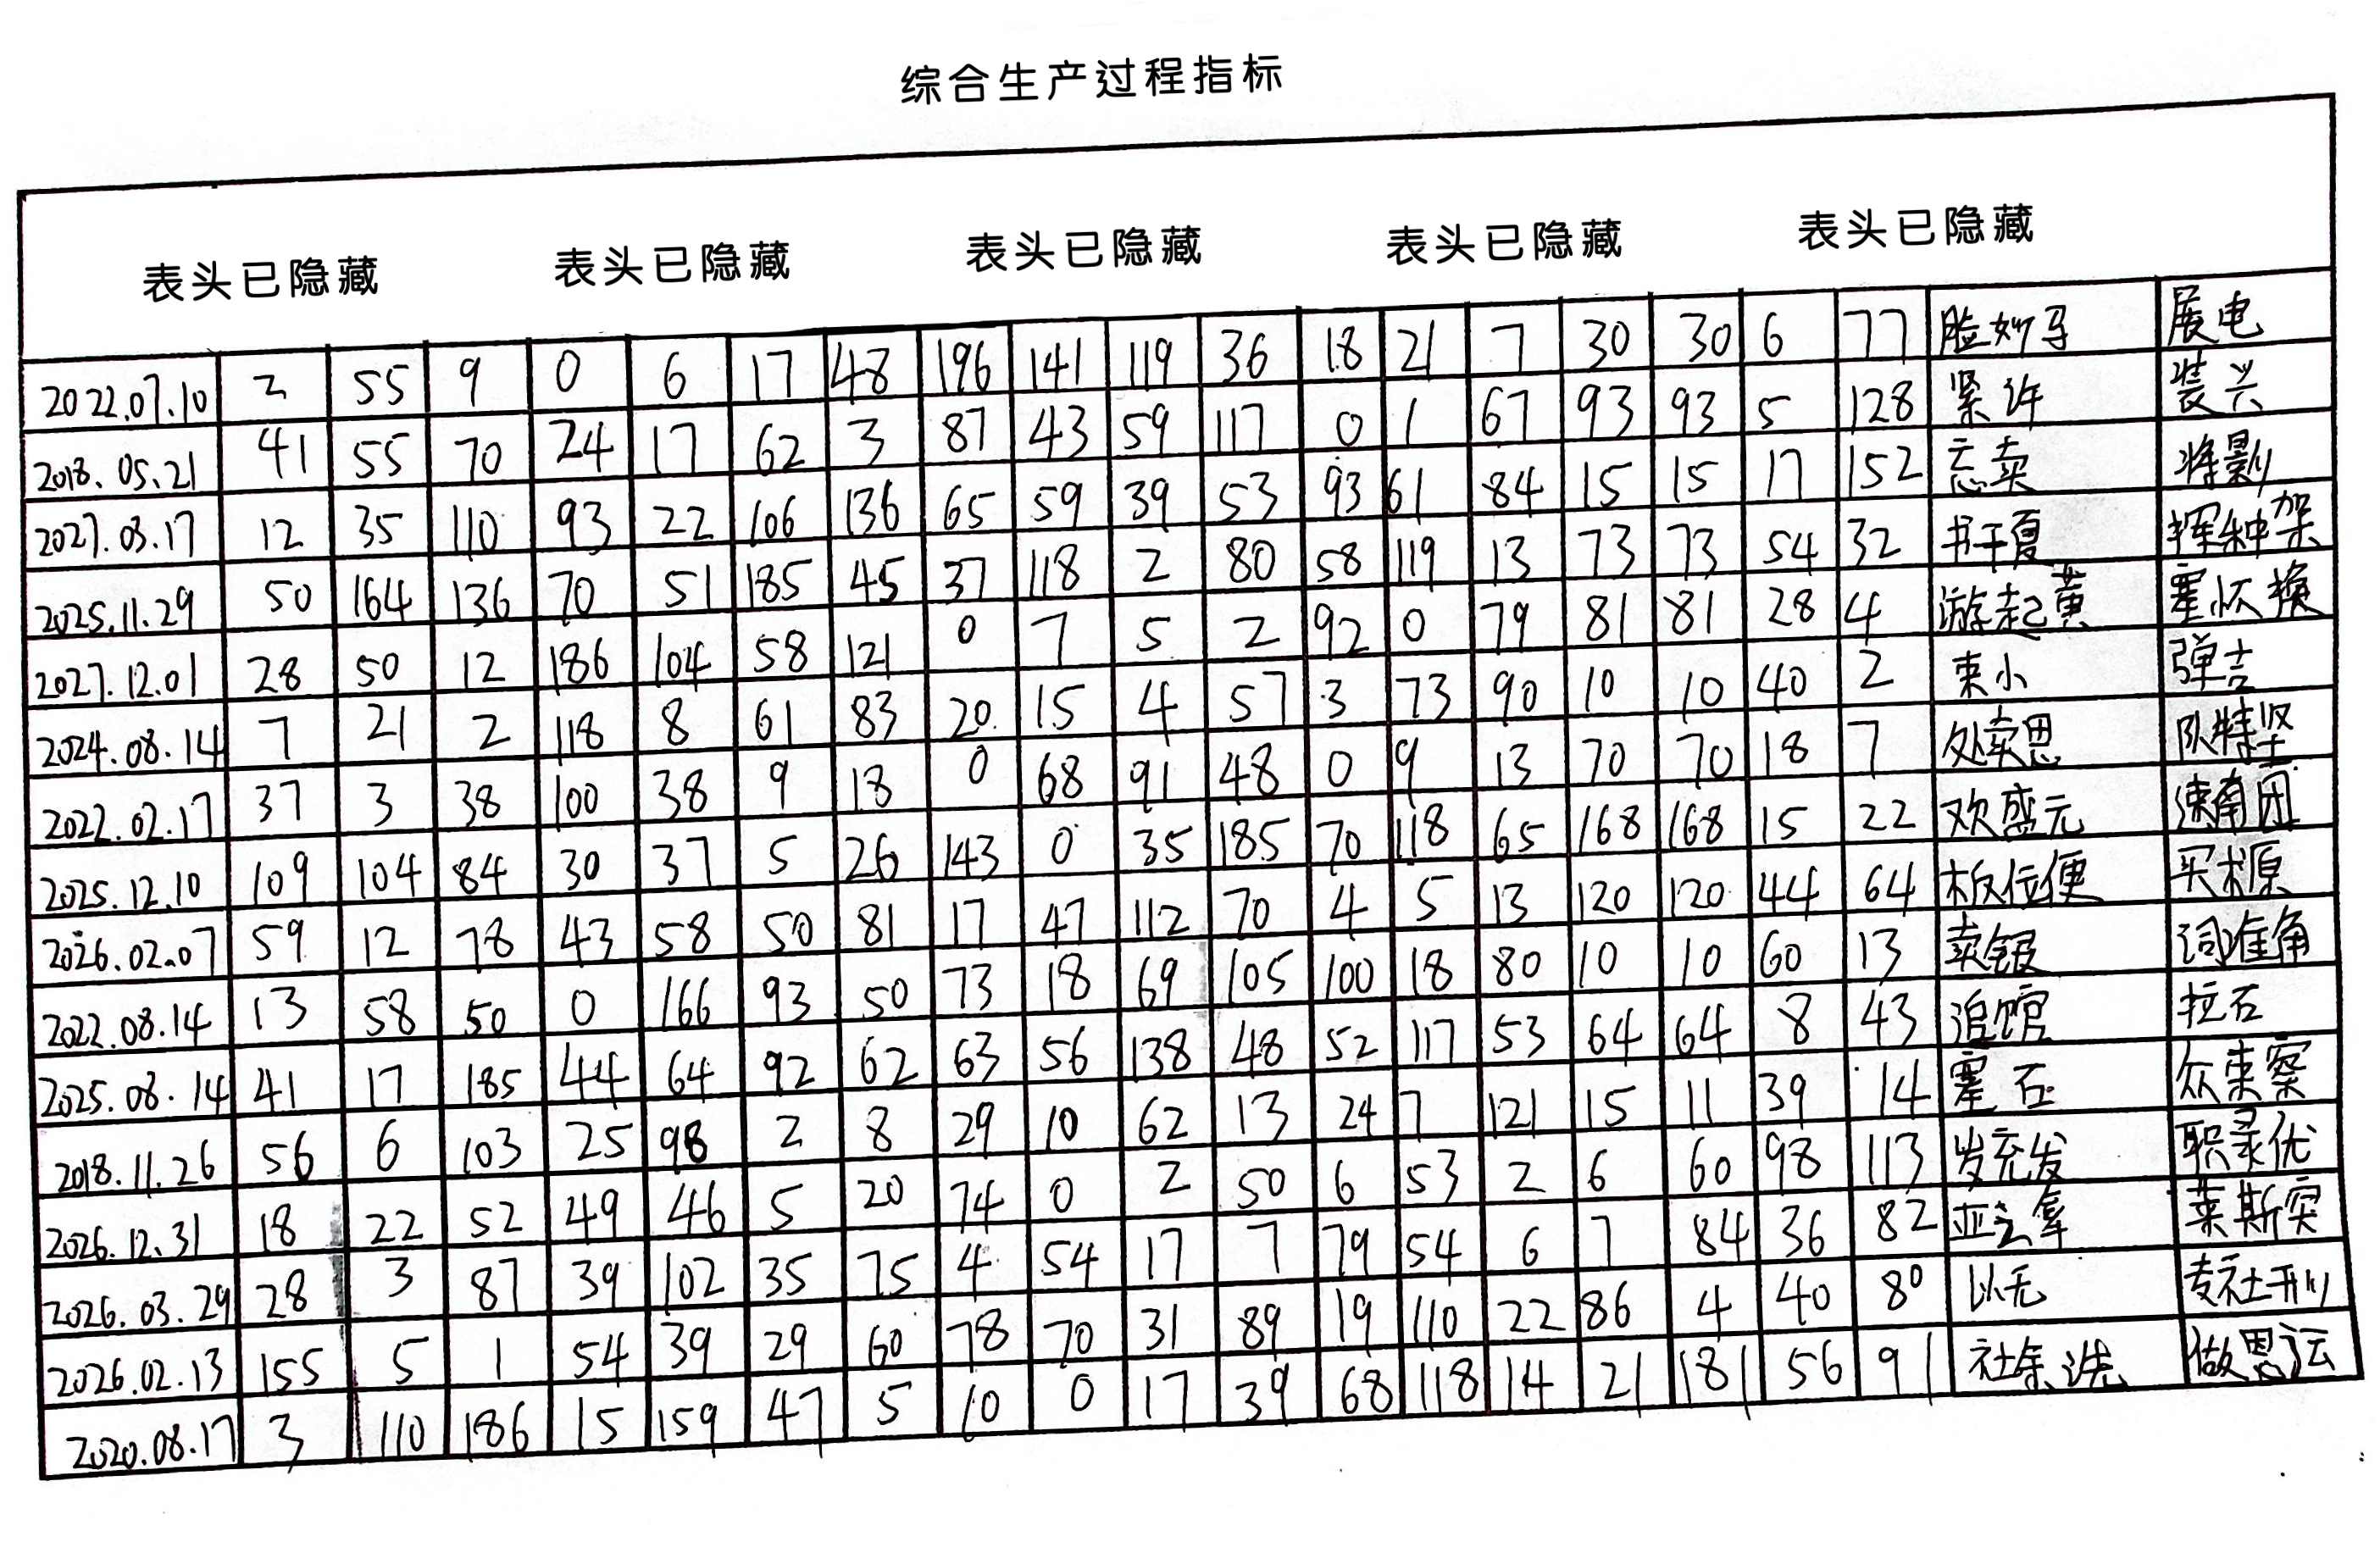 综合生产过程指标
表头已隐藏 表头已隐藏 表头已隐藏 表头已隐藏 表头已隐藏
2022.07.10 2 55 9 0 6 17 48 196 141 119 36 18 21 7 30 30 6 77 脸妙弓 展电
2018.05.21 41 55 70 24 17 62 3 87 43 59 117 0 1 67 93 93 5 128 紧许 装兴
2027.03.17 12 35 110 93 22 106 136 65 59 39 53 93 61 84 15 15 17 152 忘卖 将影
2025.11.29 50 164 136 70 51 185 45 37 118 2 80 58 119 13 73 73 54 32 书干夏 挥种架
2027.12.01 28 50 12 186 104 58 121 0 7 5 2 92 0 79 81 81 28 4 游起黄 塞怀换
2024.08.14 7 21 2 118 8 61 83 20 15 4 57 3 73 90 10 10 40 2 束小 弹吉
2022.02.17 37 3 38 100 38 9 18 0 68 91 48 0 9 13 70 70 18 7 处卖思 队特坚
2025.12.10 109 104 84 30 37 5 26 143 0 35 185 70 118 65 168 168 15 22 欢盛元 速南团
2026.02.07 59 12 78 43 58 50 81 17 47 112 70 4 5 13 120 120 44 64 板位便 买术原
2022.08.14 13 58 50 0 166 93 50 73 18 69 105 100 18 80 10 10 60 13 卖级 词准角
2025.08.14 41 17 185 44 64 92 62 63 56 138 48 52 117 53 64 64 8 43 追馆 拉石
2018.11.26 56 6 103 25 98 2 8 29 10 62 13 24 7 121 15 11 39 14 塞石 众束察
2026.12.31 18 22 52 49 46 5 20 74 0 2 50 6 53 2 6 60 98 113 发充发 职录优
2026.03.29 28 3 87 39 102 35 75 4 54 17 7 79 54 6 7 84 36 82 亚之拿 莱斯突
2026.02.13 155 5 1 54 39 29 60 78 70 31 89 19 110 22 86 4 40 80 以无 专社刑
2020.08.17 3 110 186 15 159 47 5 10 0 17 39 68 118 14 21 181 56 91 社余洗 做恩运